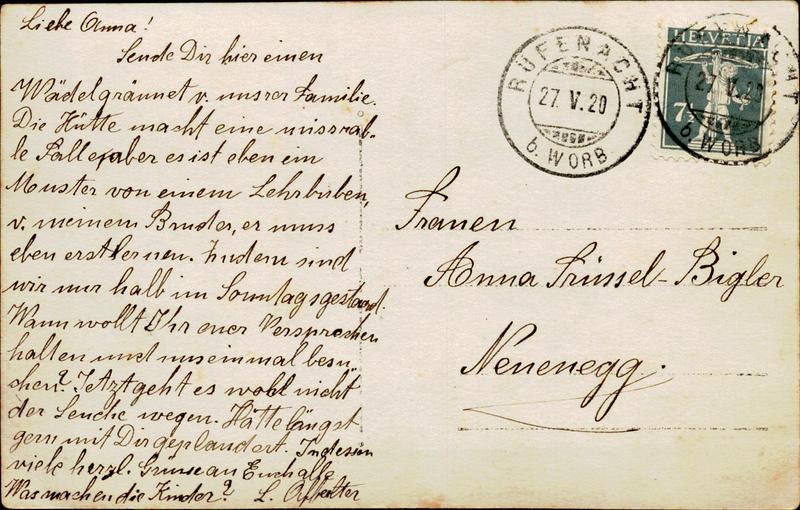 Liebe Anna!
Sende Dir hier einen
v. unsrer Familie.
Die Hütte macht eine missrab-
le Falle, aber es ist eben ein
Muster von einem Lehrbuben,
v. meinem Bruder, er muss
eben erst lernen. Zudem sind
wir nur halb im Sonntagsgestaad.
Wann wollt Ihr euer Versprechen
halten und uns einmal besu-
chen? Jetzt geht es wohl nicht
der Seuche wegen. Hätte längst
gern mit Dir geplaudert. Indessen
viele herzl. Grüsse an Euch alle
Was machen die Kinder? L.
RÜFENACHT
27. V. 20
b. WORB
HELVETIA
7½
RÜFENACHT
27. V. 20
b. WORB
Frauen
Anna Trüssel-Bigler
Neuenegg.